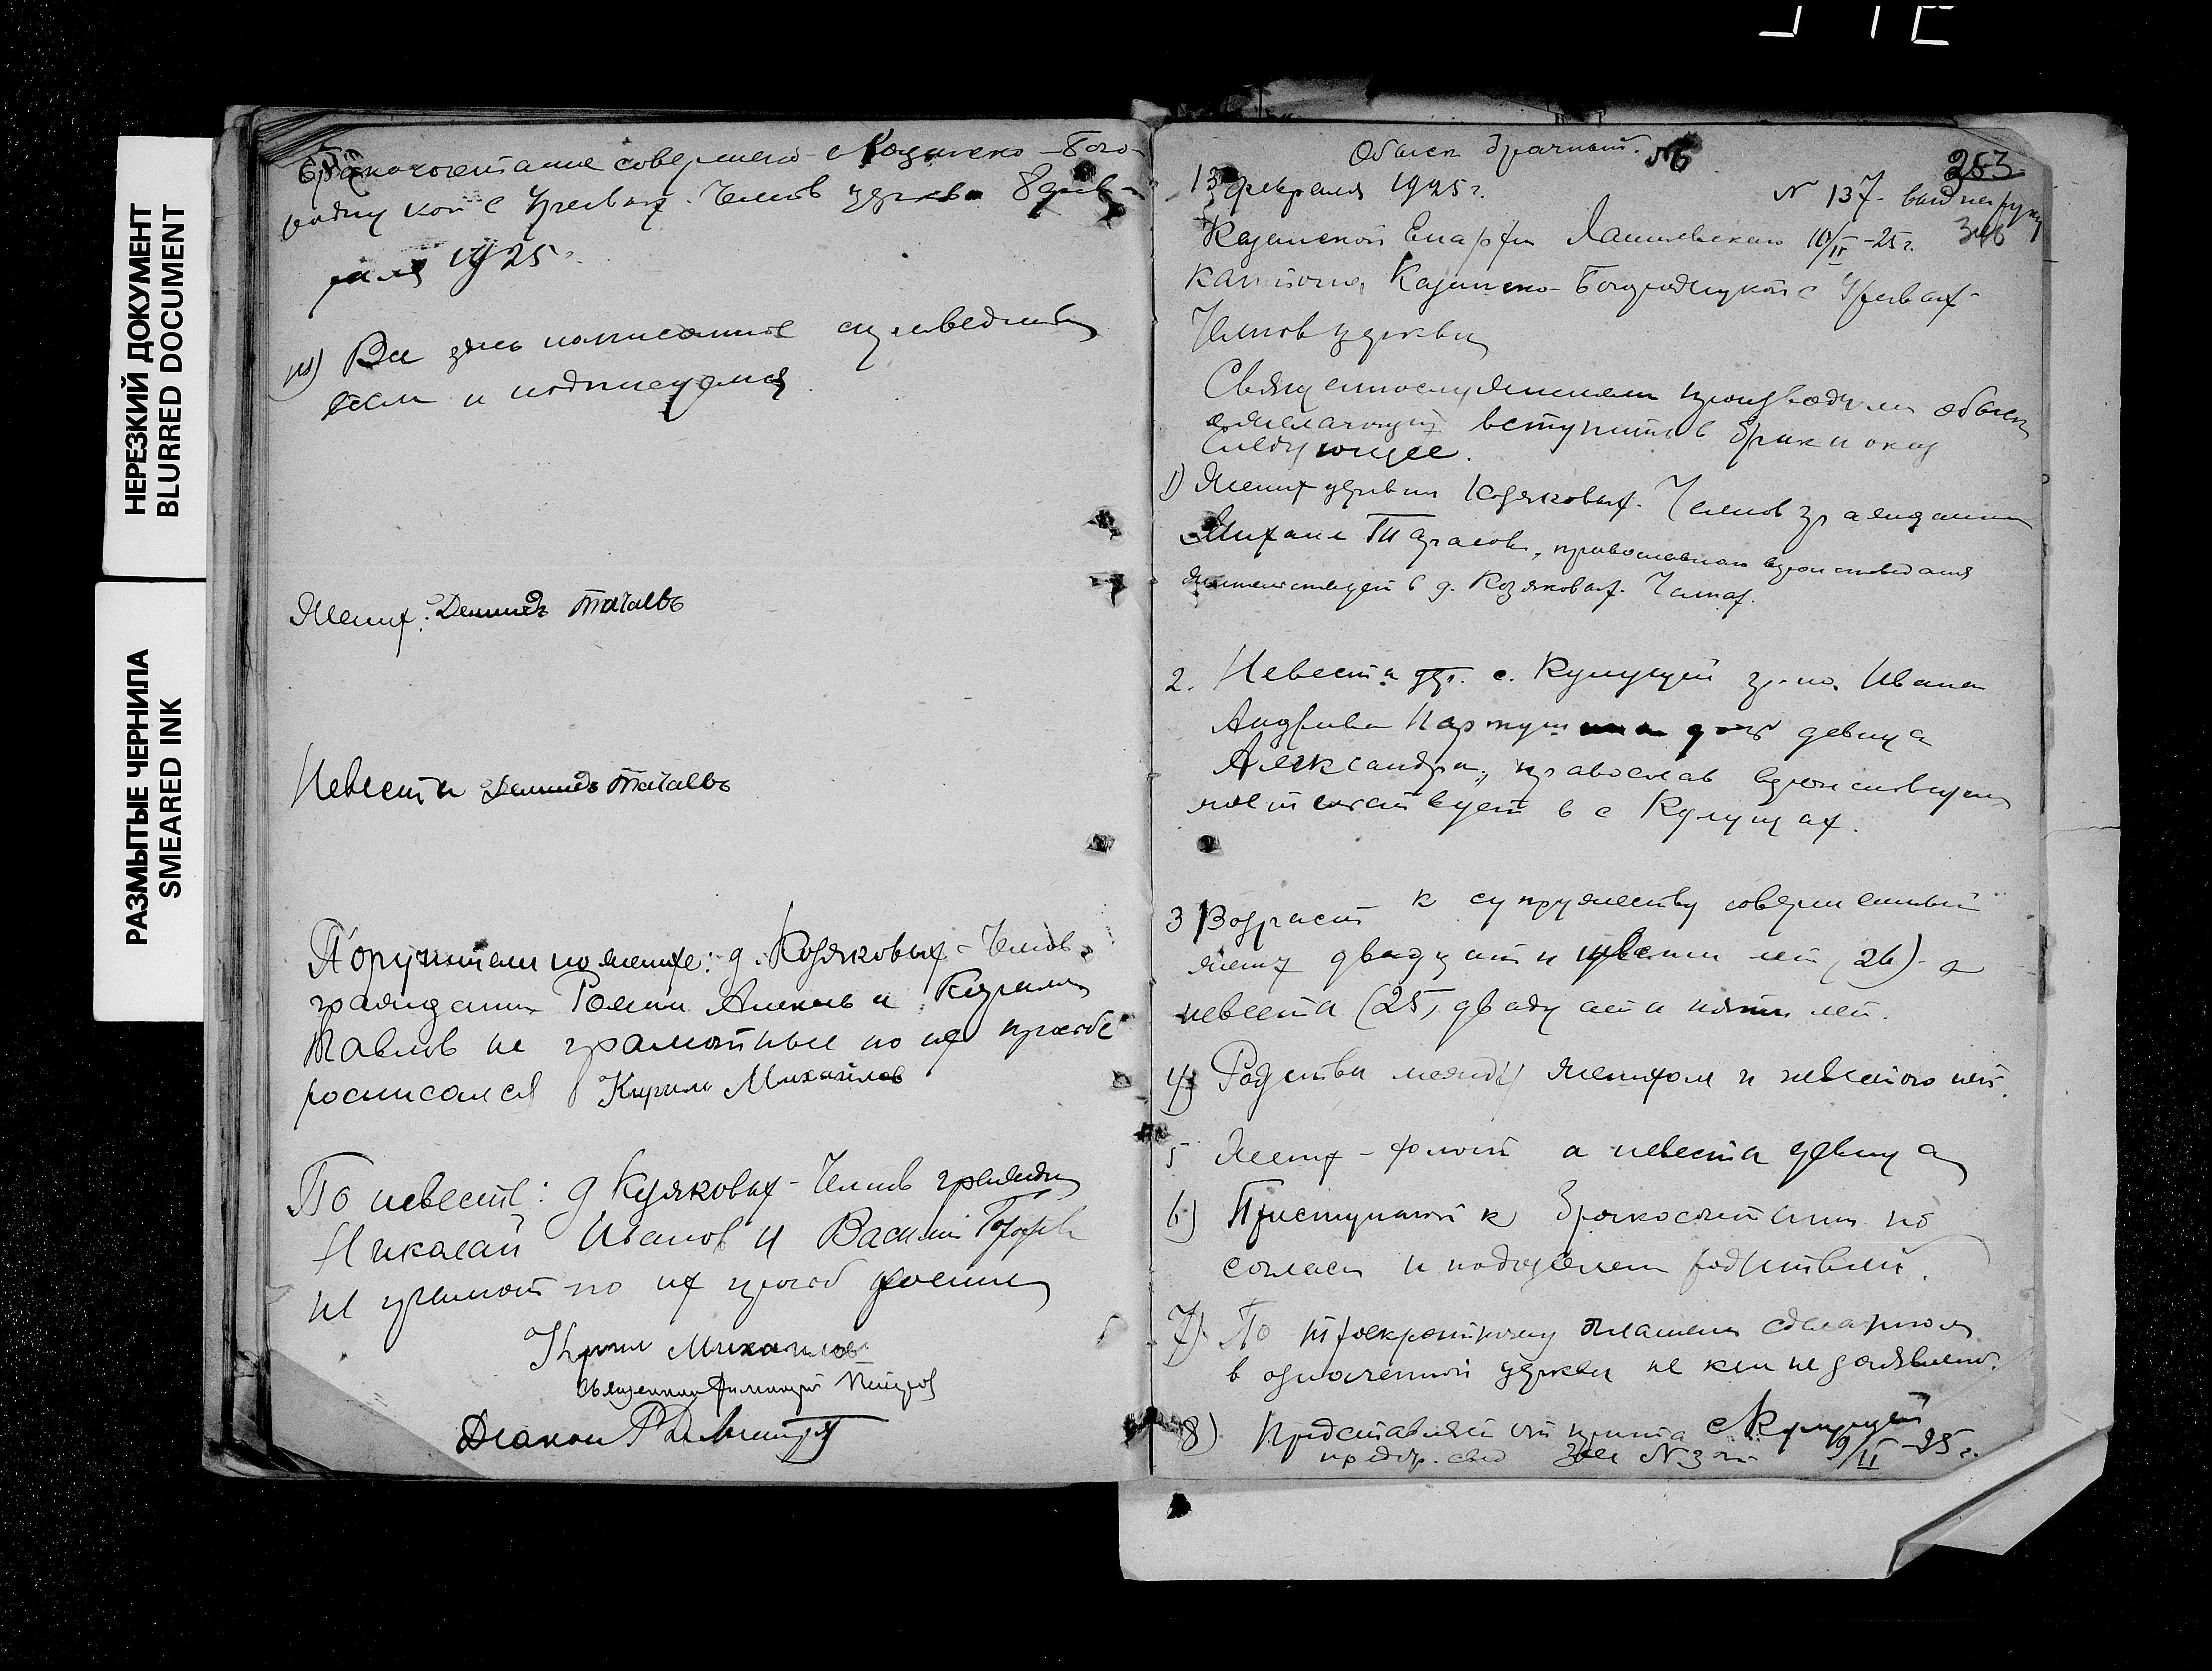 НЕРЕЗКИЙ ДОКУМЕНТ
BLURRED DOCUMENT
РАЗМЫТЫЕ ЧЕРНИЛА
SMEARED INK
Бракосочетание совершено Казанско-Бого-
родицкой с Челнов церкви 8 фев-
раля 1925 г.
Все здесь написанное
и подписуемся
Жених: Демидъ
Невеста Демидъ
Поручители по женихе: д. Козяковых-Челнов
граждане Роман и
Павлов не грамотные по их просьбе
росписался Кирилл Михайлов
По невесте: д Козяковых-Челнов граждан
Николай Иванов и Василий
не грамот по их просьб
Кирилл Михайлов
Священник Петров
Диакон
Обыск брачный. №6
253
13 февраля 1925 г. № 137- выд на руки
Казанской Епархии Лаишевского 10/II-25 г. 346
кантона, Казанско-Богородицкой с
Челнов церкви
Священнослужители производили обыск
желающих вступить в брак и оказ
следующее.
1) Жених деревни Козяковых-Челнов гражданин
Михаил Тарасов, православного вероисповедания
жительствует в д. Козяковых-Челнах.
2. Невеста с. Кулущей гр-на Ивана
Андреева дочь девица
Александра, православ вероисповедания
жительствует в с Кулущах.
3) Возраст к супружеству совершенный
жених двадцати шести лет (26) а
невеста (25) двадцати пяти лет.
4) Родства между женихом и невестою нет.
5 Жених - холост а невеста девица
6) Приступают к бракосочетанию по
согласию и родителей.
7) По троекратному оглашению сделанном
в означенной церкви не кем не заявлено.
8) Представляет от причта с Кулущей
предбр. свид за № 3 от 9/II-25 г.